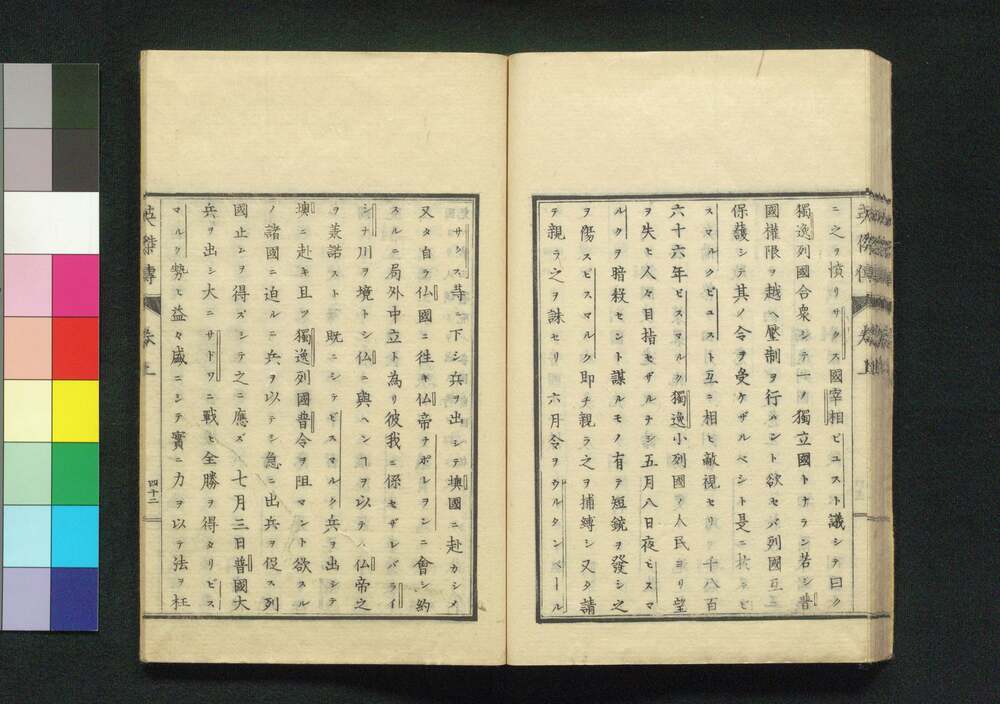 ニ之ヲ憤リサクス國宰相ビユスト議シテ曰ク
獨逸列國合衆シテ一ノ獨立國トナラン若シ普
國權限ヲ越ヘ壓制ヲ行ハント欲セバ列國互ニ
保護シテ其ノ令ヲ受ケザルベシト是ニ於テビ
スマルクビユスト互ニ相ヒ敵視セリ千八百
六十六年ビスマルク獨逸小列國ノ人民ヨリ望
ヲ失ヒ人々目指セザルナシ五月八日夜ビスマ
ルクヲ暗殺セント謀ルモノ有テ短銃ヲ發シ之
ヲ傷スビスマルク即チ親ラ之ヲ捕縛シ又タ請
テ親ラ之ヲ誅セリ六月令ヲウルタンベール
サクス等ニ下シ兵ヲ出シテ墺國ニ赴カシメ
又タ自ラ仏國ニ往キ仏帝ナポレヲンニ會シ約
スルニ局外中立ト為リ彼我ニ係セザレバライ
ン川ヲ境トシ仏ニ與ヘンヿヲ以テス仏帝之
ヲ兼諾スト既ニシテビスマルク兵ヲ出シテ
墺ニ赴キ且ツ獨逸列國普令ヲ阻マント欲スル
ノ諸國ニ迫ルニ兵ヲ以テシ急ニ出兵ヲ促ス列
國止ムヲ得ズシテ之ニ應ズ七月三日普國大
兵ヲ出シ大ニサドワニ戰ヒ全勝ヲ得タリビス
マルク勢ヒ益々盛ニシテ實ニ力ヲ以テ法ヲ枉
英傑傳
卷上
四十二